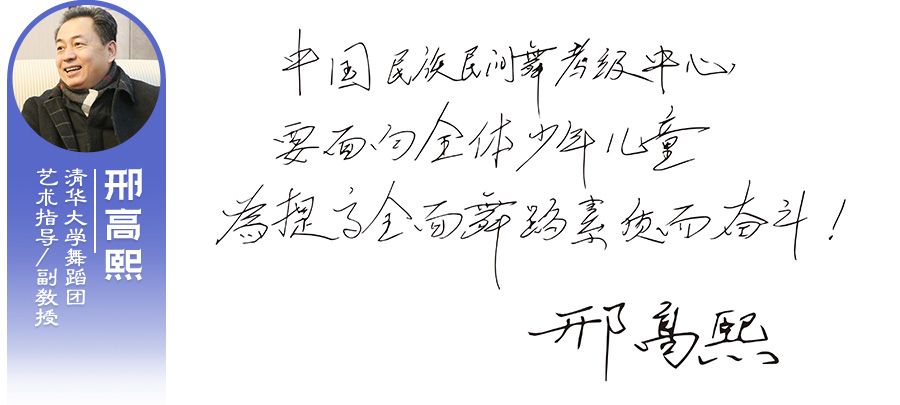 邢高熙
清华大学舞蹈团
艺术指导／副教授
中国民族民间舞考级中心
要面向全体少年儿童
為提高全面舞蹈素质而奋斗！
邢高熙